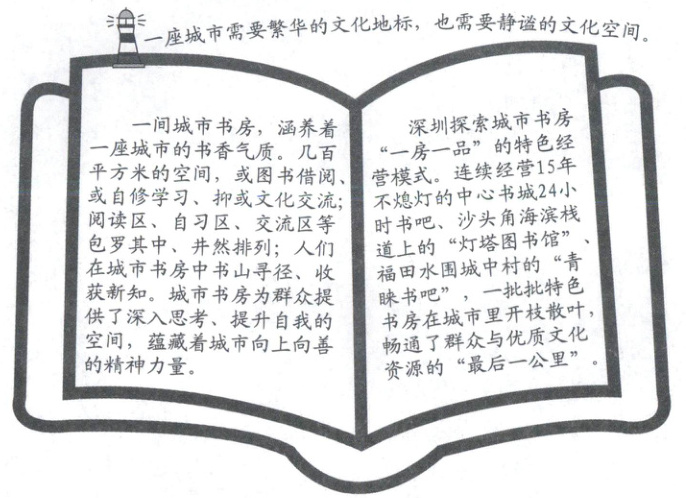 一座城市需要繁华的文化地标，也需要静谧的文化空间。
一间城市书房，涵养着
一座城市的书香气质。几百
平方米的空间，或图书借阅、
或自修学习、抑或文化交流；
阅读区、自习区、交流区等
包罗其中、井然排列；人们
在城市书房中书山寻径、收
获新知。城市书房为群众提
供了深入思考、提升自我的
空间，蕴藏着城市向上向善
的精神力量。
深圳探索城市书房
“一房一品”的特色经
营模式。连续经营15年
不熄灯的中心书城24小
时书吧、沙头角海滨栈
道上的“灯塔图书馆”、
福田水围城中村的“青
睐书吧”，一批批特色
书房在城市里开枝散叶，
畅通了群众与优质文化
资源的“最后一公里”。